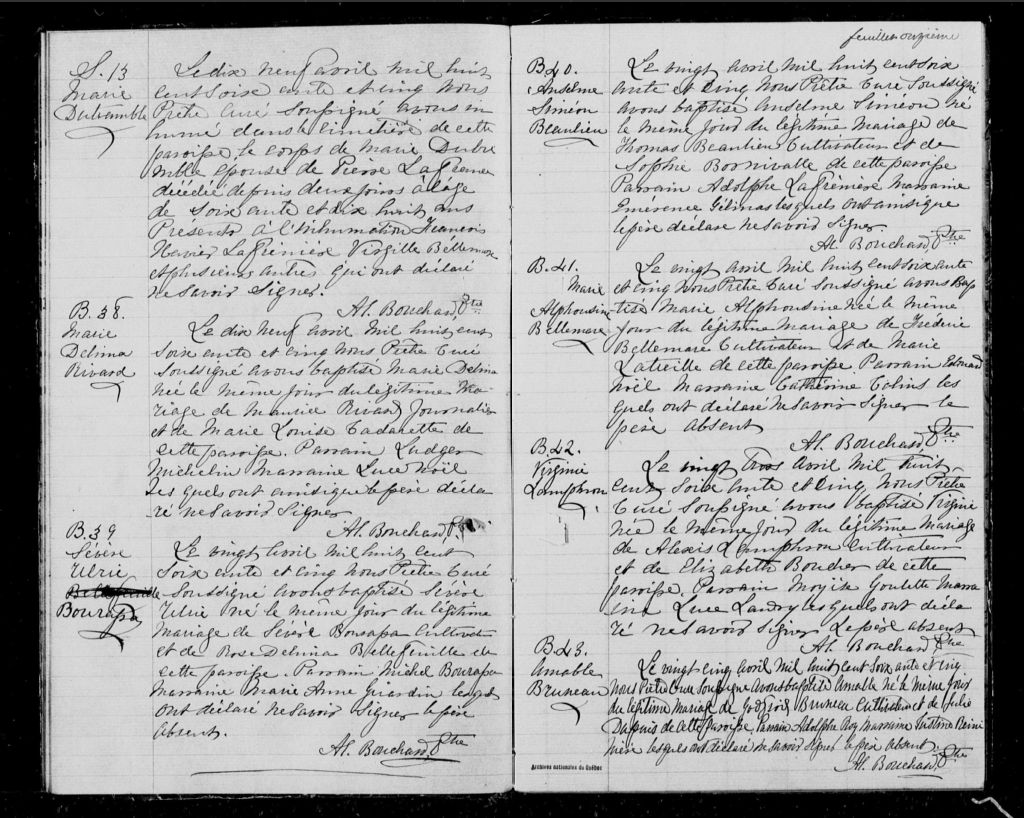 S. 13
Marie
Dutremble
Le dix neuf avril mil huit
cent soix ante et cinq Nous
Prêtre Curé soussigné avons in
humé dans le cimetière de cette
paroisse, le corps de Marie Dutre
mble épouse de Pierre Lafrenier
décédée depuis deux jours à l'age
de soix ante et dix huit ans
Présents à l'inhumation François
Xavier Lafrenière Virgille Bellemare
et plusieurs autres qui ont déclaré
ne savoir signer.
Al. Bouchard, Ptre
B. 38.
Marie
Delima
Rivard
Le dix neuf avril mil huit cent
soix ante et cinq Nous Prêtre Curé
soussigné avons baptisé Marie Delima
née le même jour du légitime Ma-
riage de Maurice Rivard Journalier
et de Marie Louise Cadarette de
cette paroisse. Parrain Ludger
Michelin Marraine Luce Noël
les quels ont ainsi que le père décla
ré ne savoir signer
Al. Bouchard, P.
B. 39
Sévère
Ulric
Bellefeuille
Bourapa
Le vingt avril mil huit cent
soix ante et cinq Nous Prêtre Curé
soussigné avons baptisé Sévère
Ulric né le même jour du légitime
Mariage de Sévère Bourapa Cultivat
et de Rose Delima Bellefeuille de
cette paroisse. Parrain Michel Bourapa
Marraine Marie Anne Girardin lesquels
ont déclaré ne savoir signer le père
absent.
Al. Bouchard, Ptre
feuillet onzième
B 40.
Anselme
Siméon
Beaulieu
Le vingt avril mil huit cent soix
ante et cinq Nous Prêtre Curé soussigné
avons baptisé Anselme Siméon né
le même jour du légitime Mariage de
Thomas Beaulieu Cultivateur et de
Sophie Bornivalle de cette paroisse
Parrain Adolphe Lafrènière Marraine
Emérence Gélinas lesquels ont ainsi que
le père déclaré ne savoir signer
Al. Bouchard, Ptre
B. 41.
Marie
Alphonsine
Bellemare
Le vingt avril mil huit cent soix ante
et cinq Nous Prêtre Curé soussigné avons bap
tisé Marie Alphonsine née le même
jour du légitime Mariage de Fréderic
Bellemare Cultivateur et de Marie
Latreille de cette paroisse Parrain Edouard
Noël Marraine Cathérine les
quels ont déclaré ne savoir signer le
père absent
Al. Bouchard, Ptre
B. 42.
Virginie
Lamphron
Le vingt trois avril mil huit
cent soix ante et cinq, Nous Prêtre
Curé soussigné avons baptisé Virginie
née le même jour du légitime Mariage
de Alexis Lamphron Cultivateur
et de Elizabeth Boucher de cette
paroisse. Parrain Moyïse Goulette Marra
ine Luce Landry lesquels ont décla
ré ne savoir signer le père absent
Al. Bouchard Ptre
B 43.
Amable
Bruneau
Le vingt cinq avril mil huit cent soix ante et cinq
Nous Prêtre Curé soussigné avons baptisé Amable né le même jour
du légitime mariage de Bruneau Cultivateur et de Julie
Dupuis de cette paroisse. Parrain Adolphe Roy Marraine
lesquels ont déclaré ne savoir signer le père absent.
Al. Bouchard, Ptre
Archives nationales du Québec